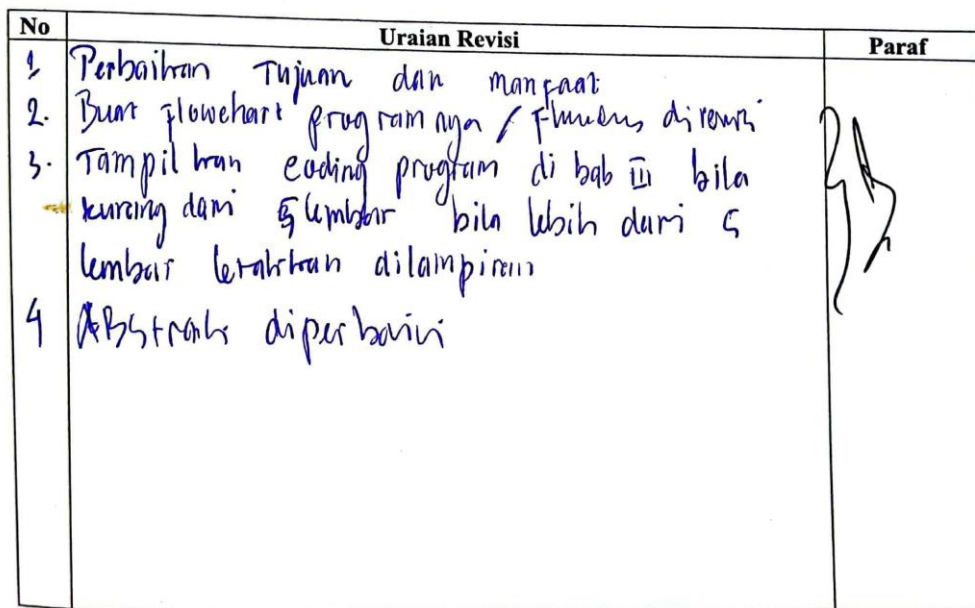 No Uraian Revisi Paraf
1. Perbaikan Tujuan dan manfaat
2. Buat flowchart programnya / direvisi
3. Tampilkan coding program di bab III bila
kurang dari 5 lembar bila lebih dari 5
lembar letakkan dilampiran
4 Abstrak diperbaiki